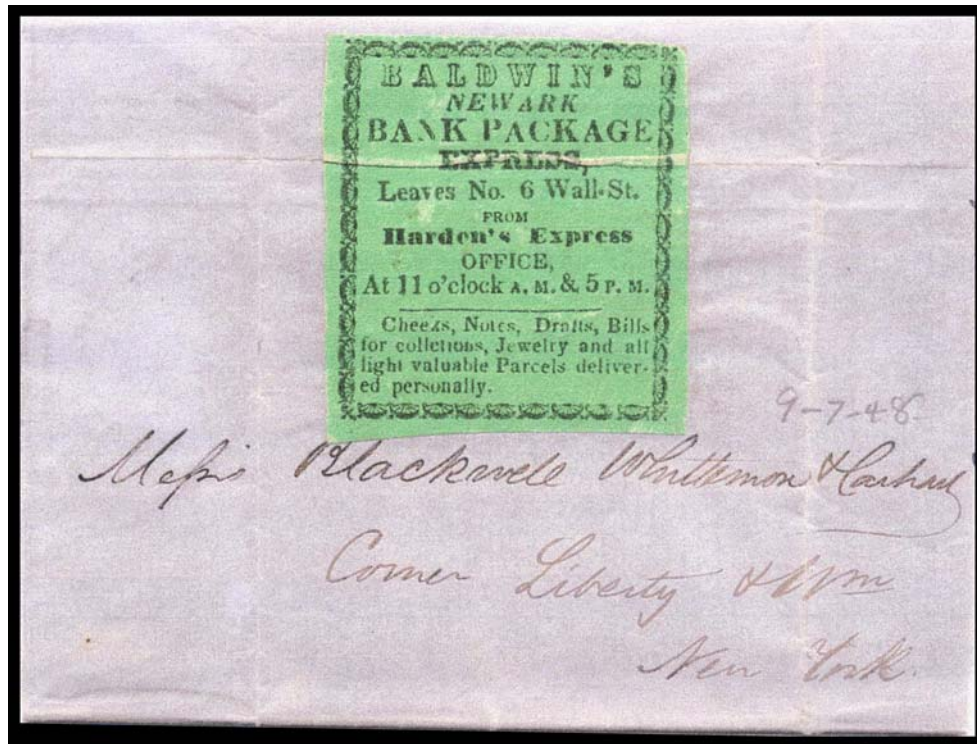 BALDWIN'S
NEWARK
BANK PACKAGE
EXPRESS,
Leaves No. 6 Wall-St.
FROM
Harden's Express
OFFICE,
At 11 o'clock A. M. & 5 P. M.
Checks, Notes, Drafts, Bills
for colletions, Jewelry and all
light valuable Parcels deliver-
ed personally.
9-7-48
Messrs Blackwell Whittemore & Carhart
Corner Liberty & Wm
New York.